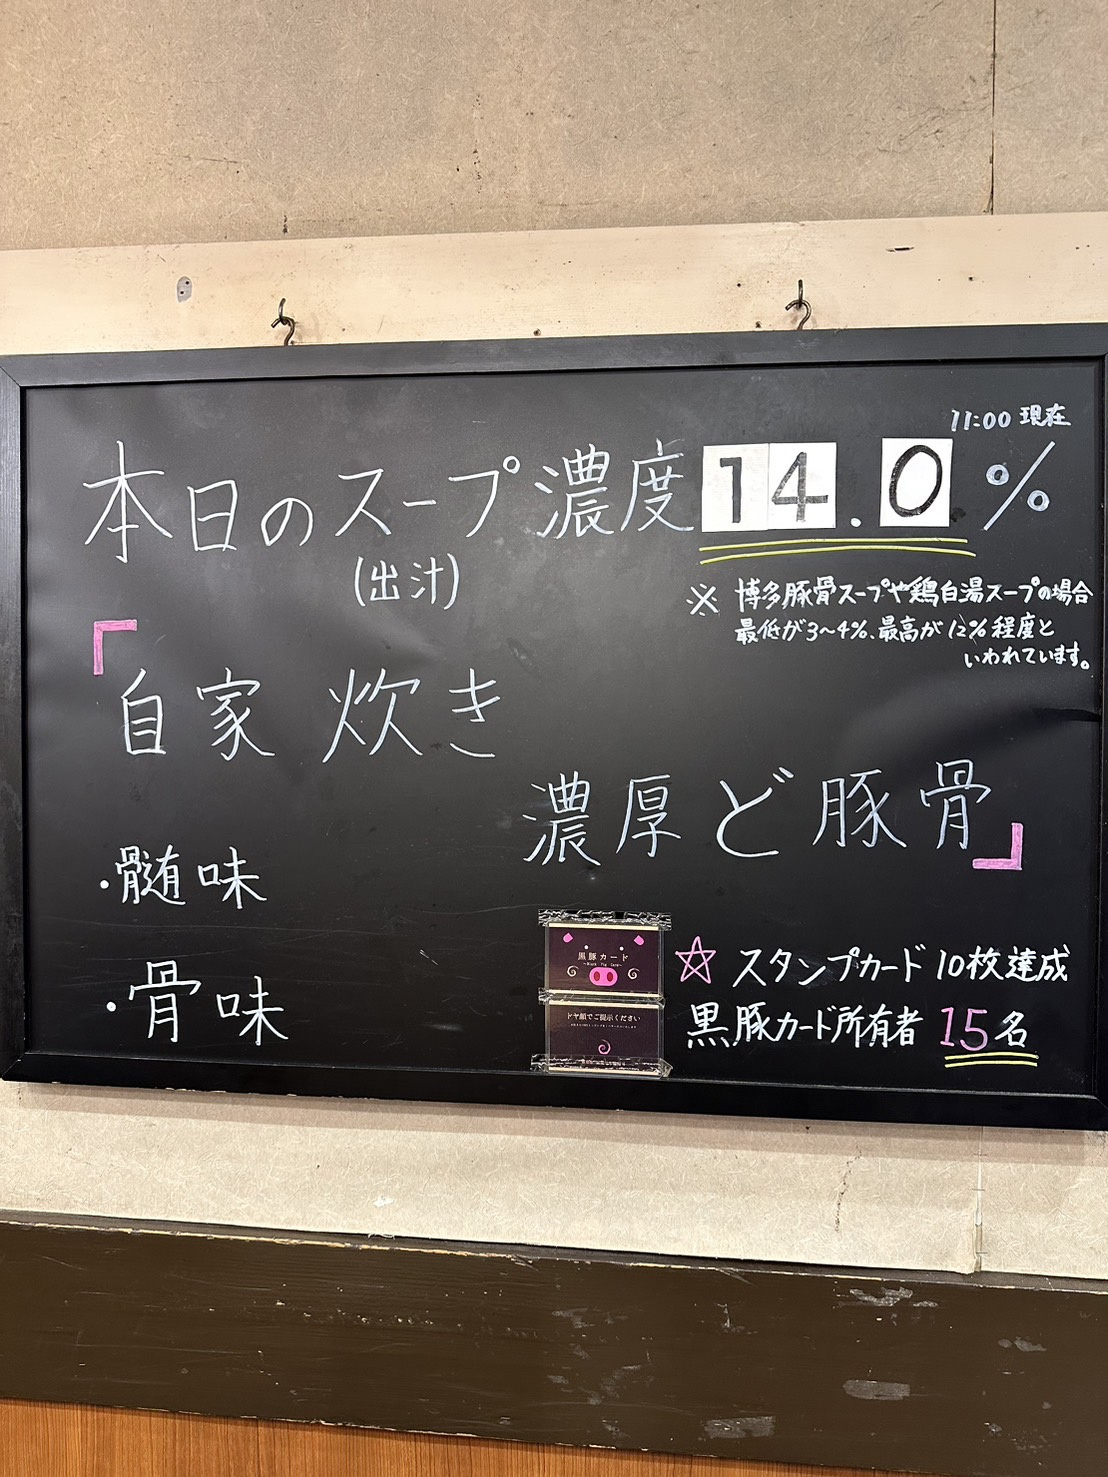 11:00 現在
本日のスープ濃度 14.0%
(出汁)
※ 博多豚骨スープや鶏白湯スープの場合
最低が3~4%、最高が12%程度と
いわれています。
「自家炊き
濃厚ど豚骨」
・髄味
・骨味
黒豚カード
~Black Pig Card~
ドヤ顔でご提示ください
☆ スタンプカード10枚達成
黒豚カード所有者 15名